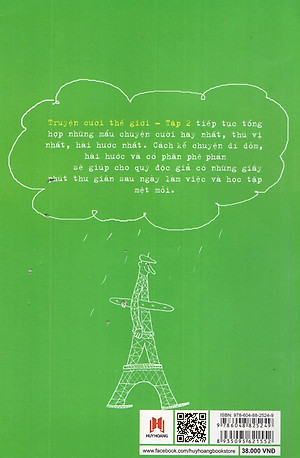 Truyện cười thế giới - Tập 2 tiếp tục tổng
hợp những mẩu chuyện cười hay nhất, thú vị
nhất, hài hước nhất. Cách kể chuyện dí dỏm,
hài hước và có phần phê phán
sẽ giúp cho quý độc giả có những giây
phút thư giãn sau ngày làm việc và học tập
mệt mỏi.
ISBN: 978-604-88-2524-9
9 786048 825249
8 935095 621552
HUYHOANG
www.facebook.com/huyhoangbookstore
38.000 VNĐ